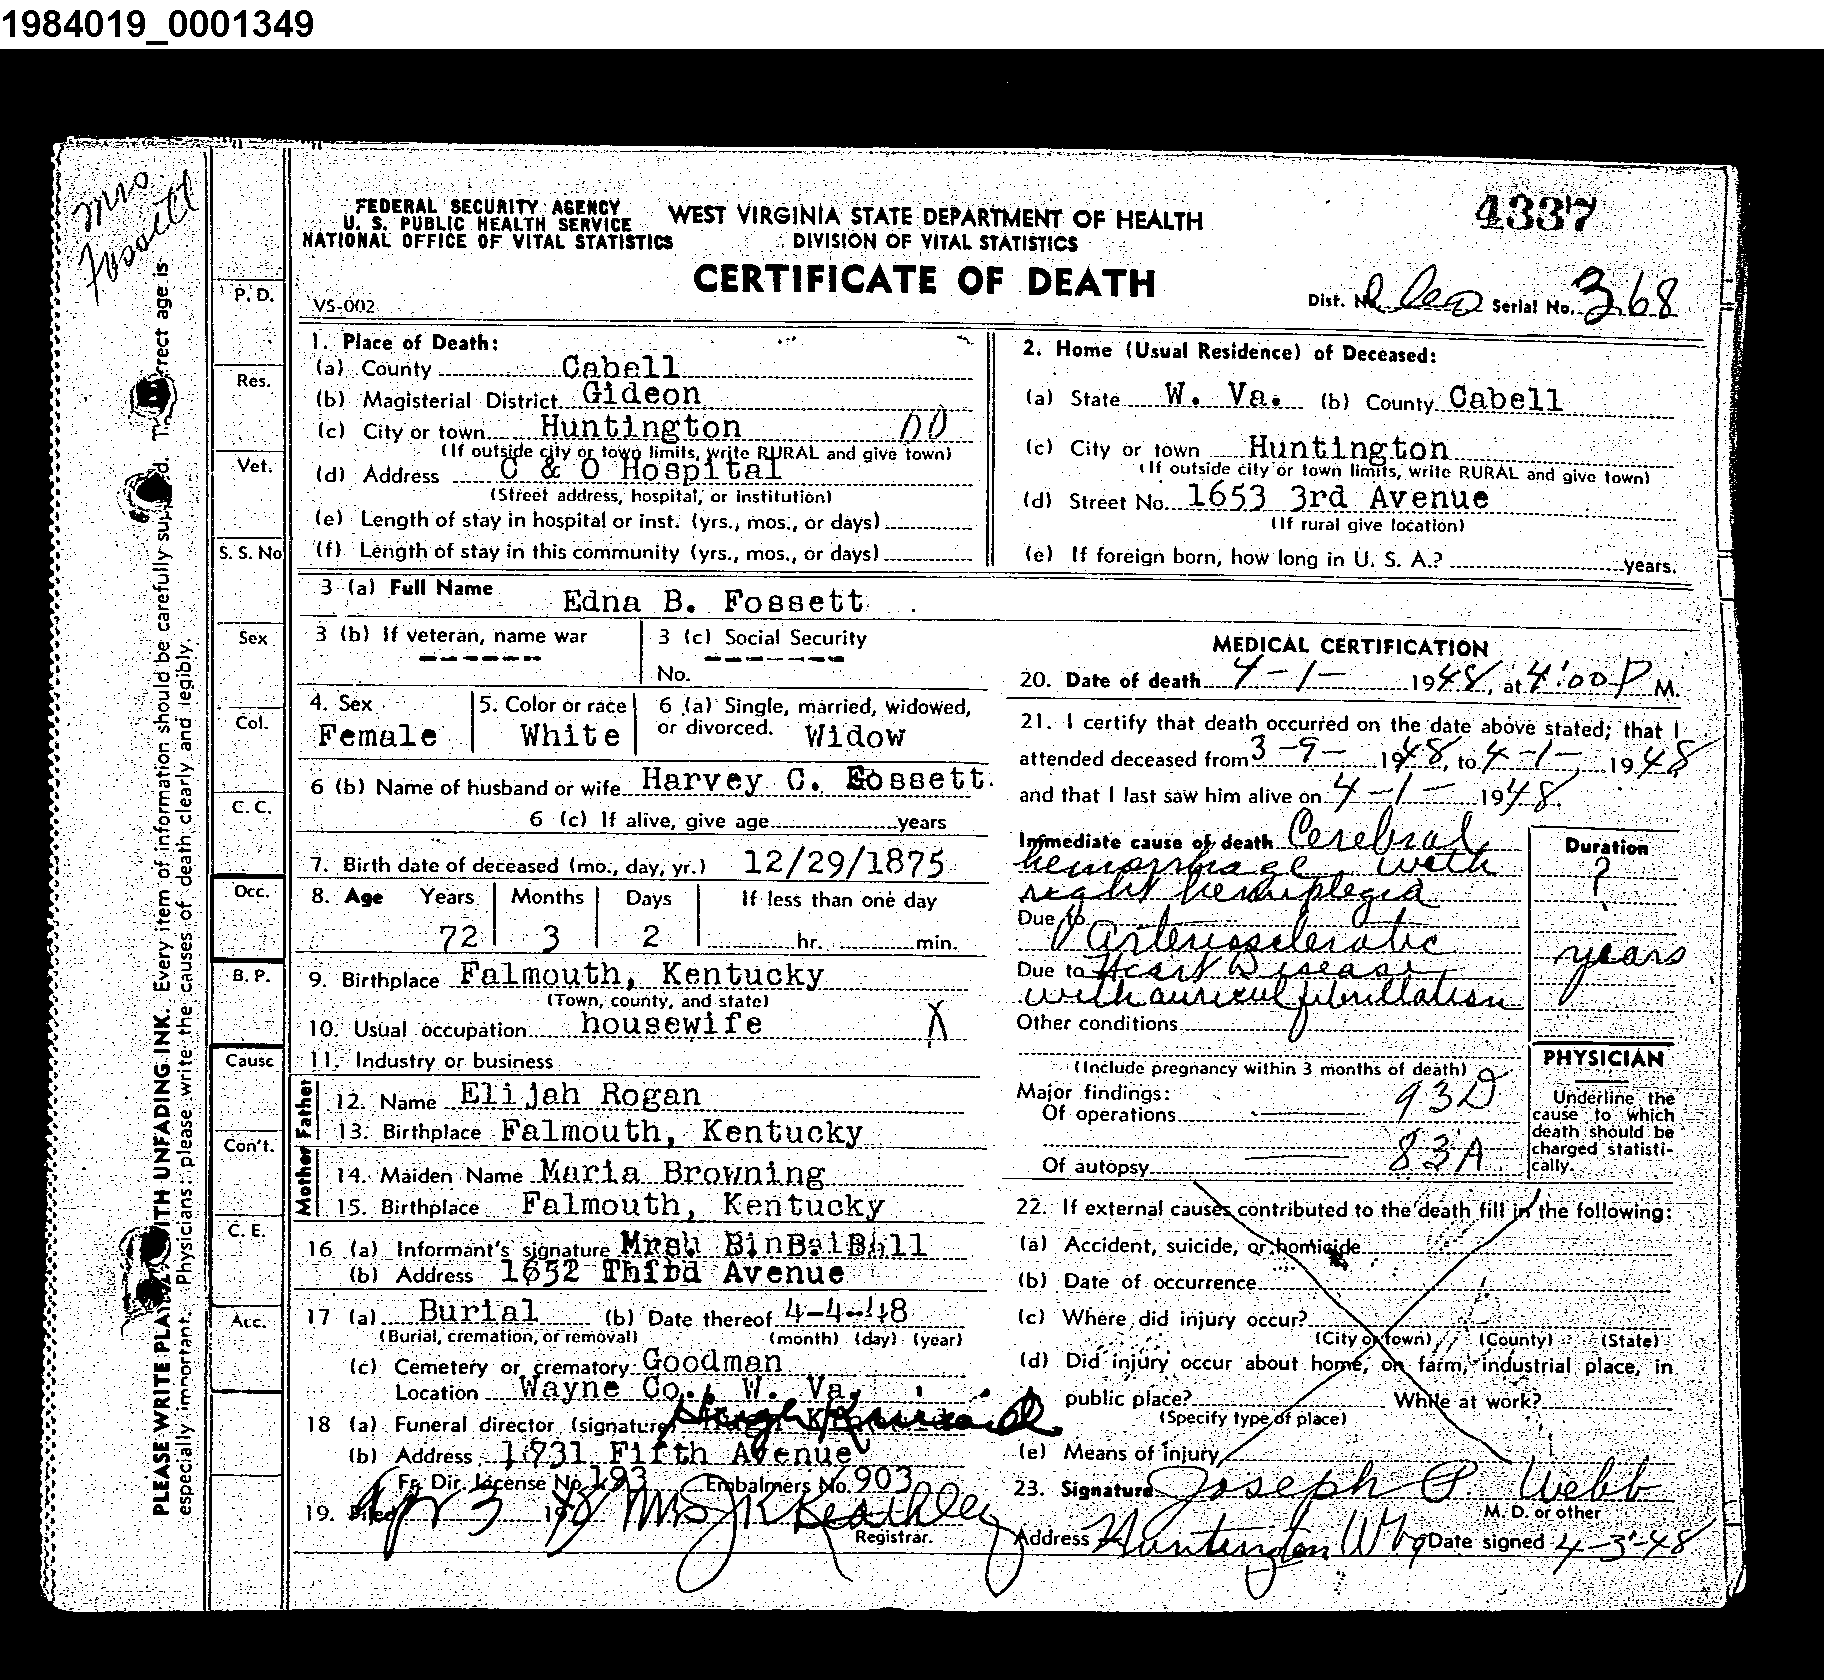 1984019_0001349
Mrs.
Fossett
FEDERAL SECURITY AGENCY
U. S. PUBLIC HEALTH SERVICE
NATIONAL OFFICE OF VITAL STATISTICS
WEST VIRGINIA STATE DEPARTMENT OF HEALTH
DIVISION OF VITAL STATISTICS
CERTIFICATE OF DEATH
4337
VS-002
Dist. No. Serial No. 368
P. D.
Res.
Vet.
S. S. No
Sex
Col.
C. C.
Occ.
B. P.
Cause
Con't.
C. E.
Acc.
PLEASE WRITE PLAINLY WITH UNFADING INK. Every item of information should be carefully supplied. The correct age is
especially important. Physicians: please write the causes of death clearly and legibly.
1. Place of Death:
(a) County Cabell
(b) Magisterial District Gideon
(c) City or town Huntington 00
(If outside city or town limits, write RURAL and give town)
(d) Address C & O Hospital
(Street address, hospital, or institution)
(e) Length of stay in hospital or inst. (yrs., mos., or days)
(f) Length of stay in this community (yrs., mos., or days)
2. Home (Usual Residence) of Deceased:
(a) State W. Va. (b) County Cabell
(c) City or town Huntington
(If outside city or town limits, write RURAL and give town)
(d) Street No. 1653 3rd Avenue
(If rural give location)
(e) If foreign born, how long in U. S. A.? years.
3 (a) Full Name Edna B. Fossett
3 (b) If veteran, name war -------
3 (c) Social Security
No. -------
4. Sex Female
5. Color or race White
6 (a) Single, married, widowed,
or divorced. Widow
6 (b) Name of husband or wife Harvey C. Fossett.
6 (c) If alive, give age years
7. Birth date of deceased (mo., day, yr.) 12/29/1875
8. Age Years Months Days If less than one day
72 3 2 hr. min.
9. Birthplace Falmouth, Kentucky
(Town, county, and state)
10. Usual occupation housewife X
11. Industry or business
Father
12. Name Elijah Rogan
13. Birthplace Falmouth, Kentucky
Mother
14. Maiden Name Maria Browning
15. Birthplace Falmouth, Kentucky
16 (a) Informant's signature Mrs.
(b) Address 1652 Third Avenue
17 (a) Burial (b) Date thereof 4-4-48
(Burial, cremation, or removal) (month) (day) (year)
(c) Cemetery or crematory Goodman
Location Wayne Co., W. Va.
18 (a) Funeral director (signature)
(b) Address 1731 Fifth Avenue
Fn Dir. License No. 193 Embalmers No. 903
19. Filed Apr 3 1948 Mrs J K Keathley
Registrar.
MEDICAL CERTIFICATION
20. Date of death 4-1- 1948, at 4:00 P M.
21. I certify that death occurred on the date above stated; that I
attended deceased from 3-9- 1948, to 4-1- 1948
and that I last saw him alive on 4-1- 1948.
Immediate cause of death Cerebral
hemorrhage with
right hemiplegia
Due to Arteriosclerotic
Due to Heart Disease
with auricul fibrillation
Other conditions
(Include pregnancy within 3 months of death)
Duration
?
years
Major findings:
Of operations 93D
Of autopsy 83A
PHYSICIAN
Underline the
cause to which
death should be
charged statisti-
cally.
22. If external causes contributed to the death fill in the following:
(a) Accident, suicide, or homicide
(b) Date of occurrence
(c) Where did injury occur?
(City or town) (County) (State)
(d) Did injury occur about home, on farm, industrial place, in
public place? While at work?
(Specify type of place)
(e) Means of injury
23. Signature Joseph P. Webb
M. D. or other
Address Huntington W Va Date signed 4-3-48